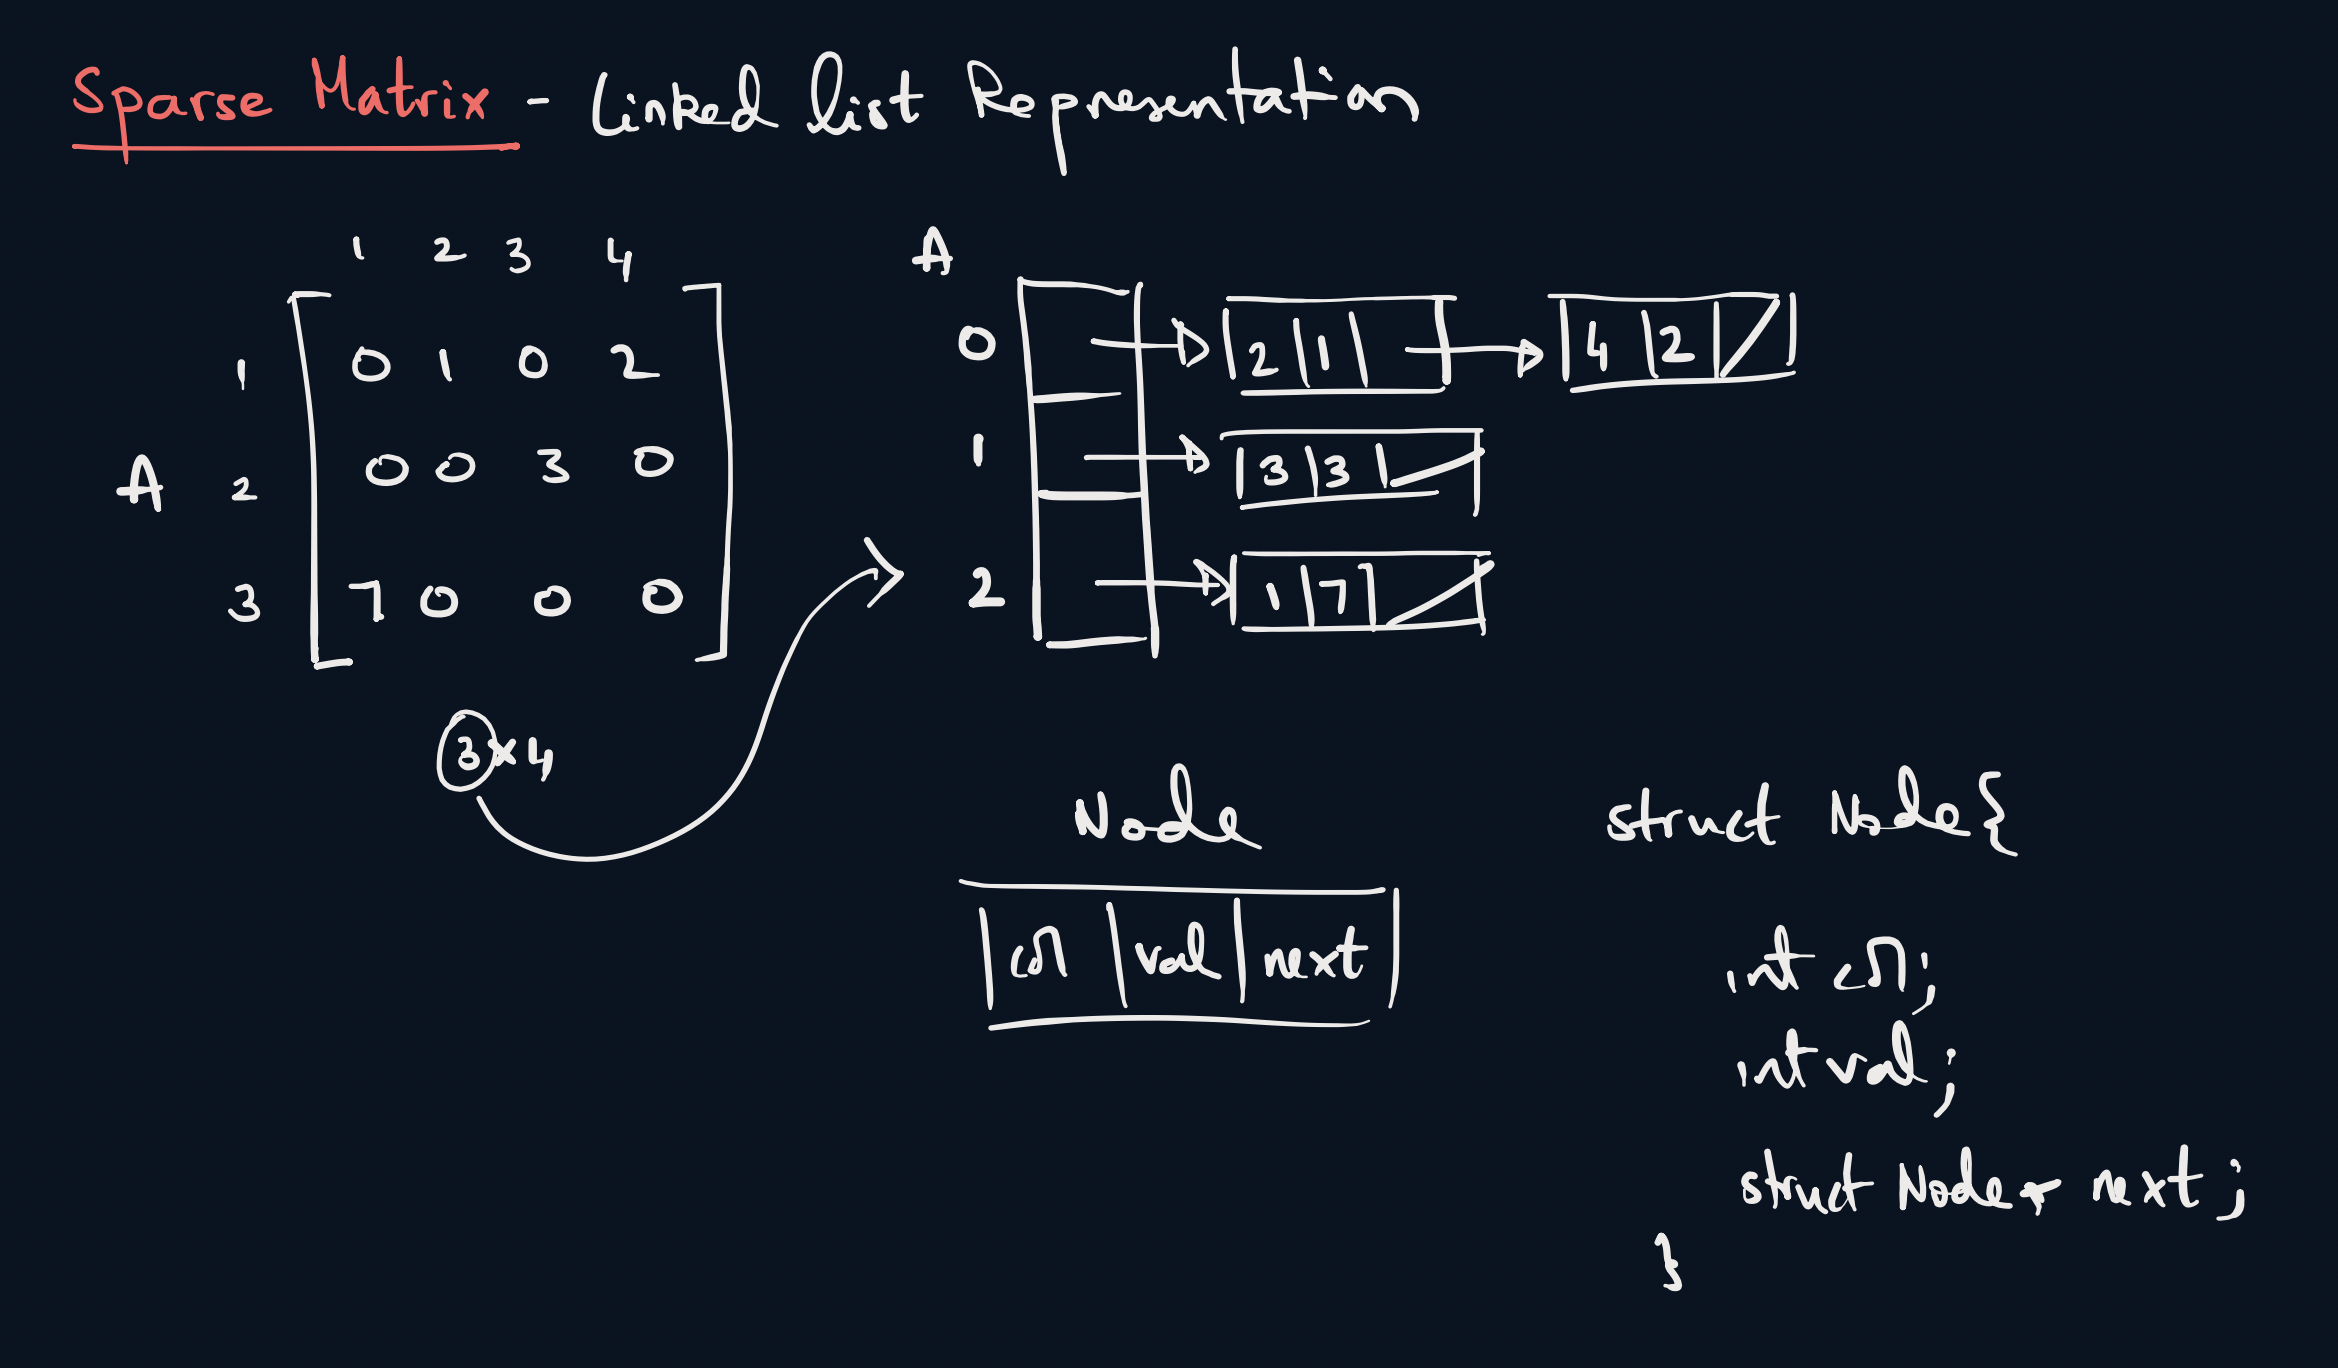 Sparse Matrix - Linked list Representation
1 2 3 4
1 0 1 0 2
A 2 0 0 3 0
3 7 0 0 0
3x4
A
0 2 1 4 2
1 3 3
2 1 7
Node
col val next
struct Node{
int col;
int val;
struct Node* next;
}